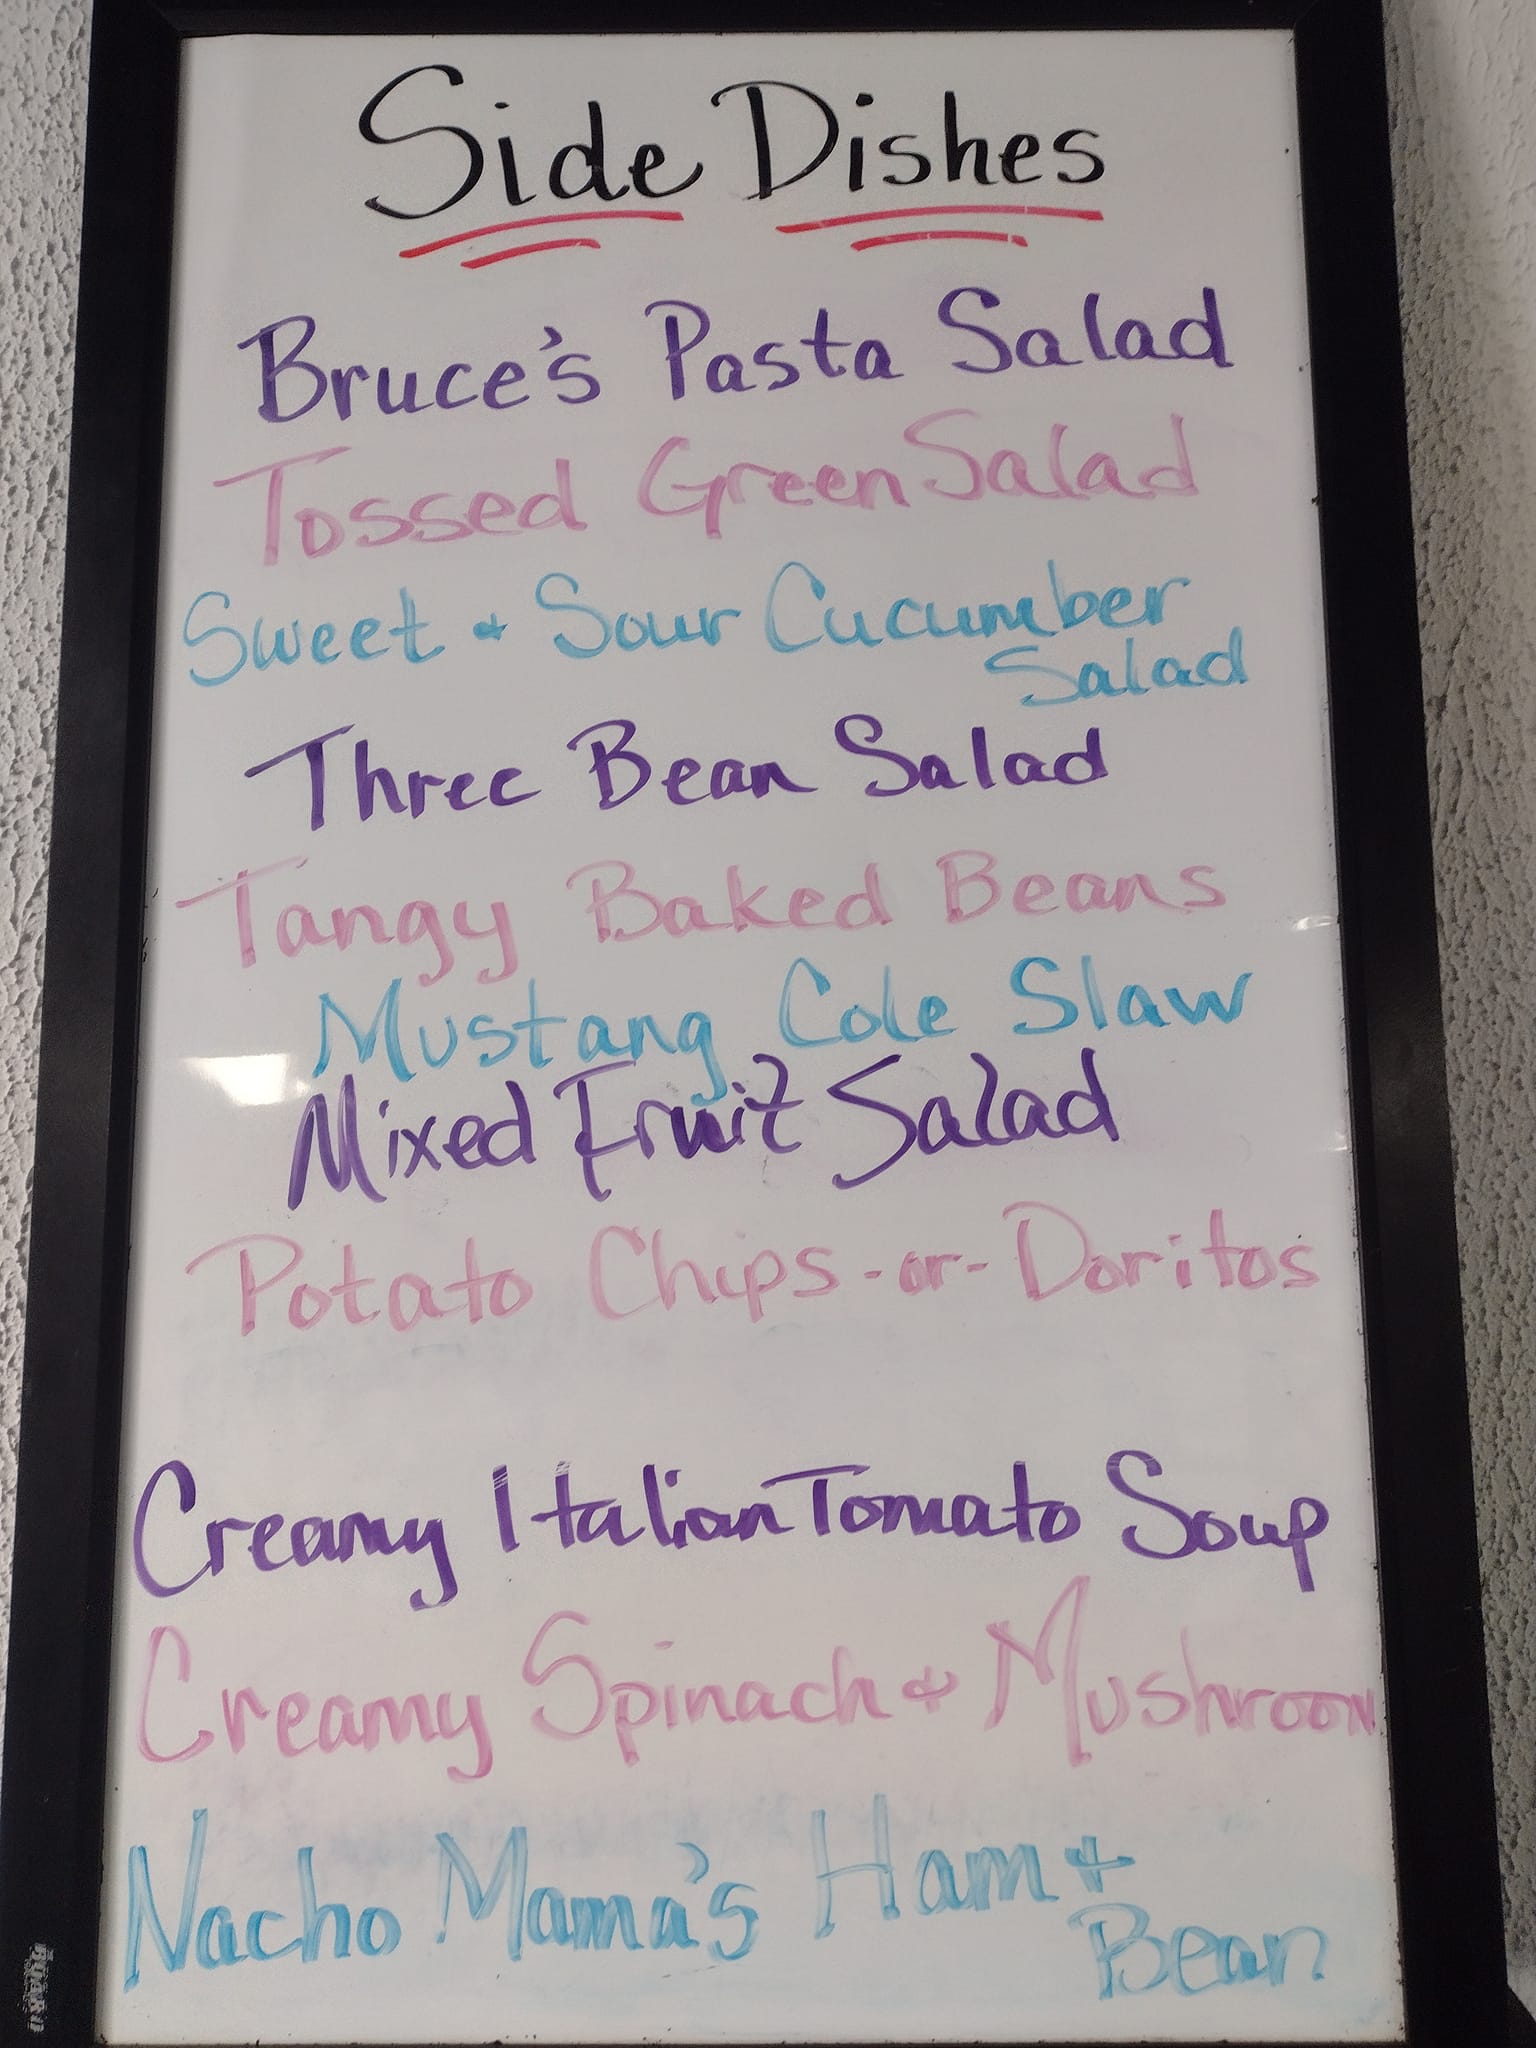 Side Dishes
Bruce's Pasta Salad
Tossed Green Salad
Sweet & Sour Cucumber
Salad
Three Bean Salad
Tangy Baked Beans
Mustang Cole Slaw
Mixed Fruit Salad
Potato Chips -or- Doritos
Creamy Italian Tomato Soup
Creamy Spinach & Mushroom
Nacho Mama's Ham &
Bean